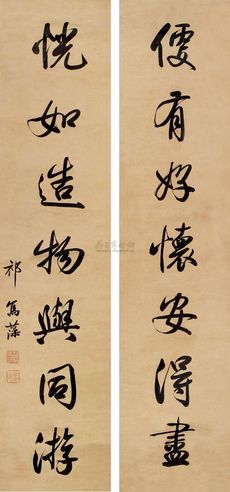 便有好懷安得盡
恍如造物與同游
祁寯藻